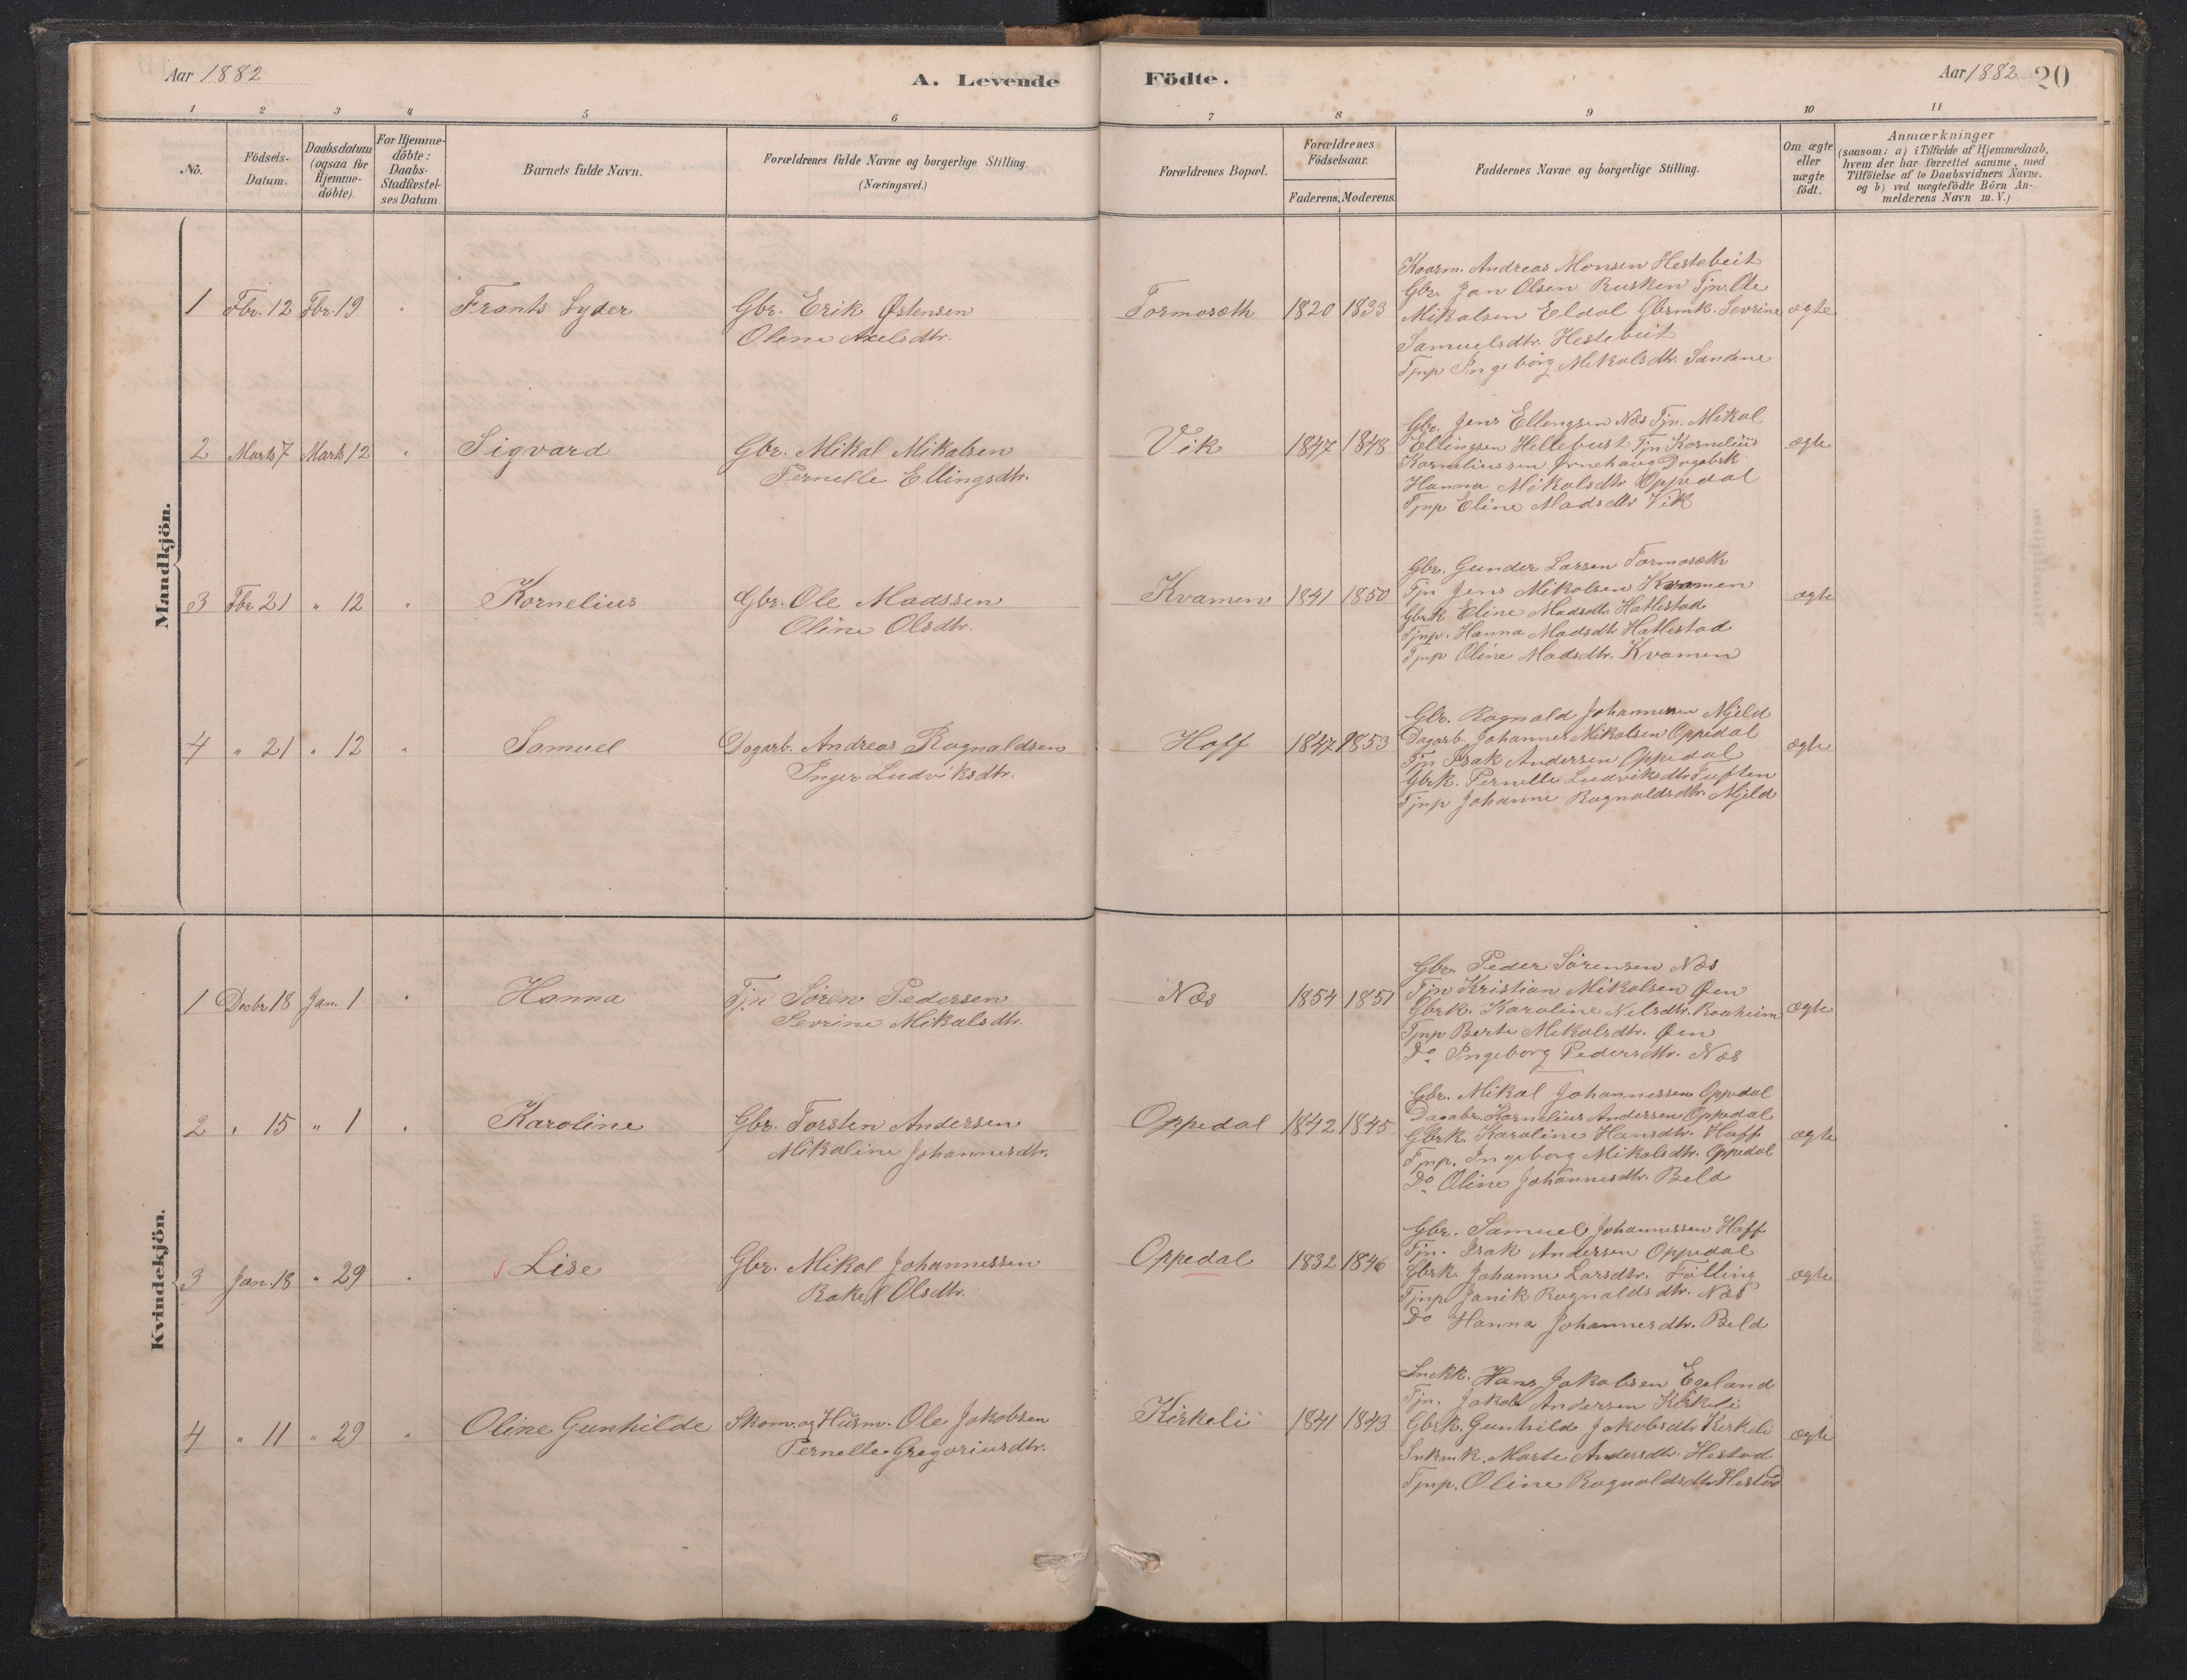 Aar 1882
A. Levende Födte.
Aar 1882 20
1 2 3 4 5 6 7 8 9 10 11
No.
Födsels-
Datum.
Daabsdatum
(ogsaa for
Hjemme-
döbte).
For Hjemme-
döbte:
Daabs-
Stadfæstel-
ses Datum.
Barnets fulde Navn.
Forældrenes fulde Navne og borgerlige Stilling.
(Næringsvei.)
Forældrenes Bopæl.
Forældrenes
Födselsaar.
Faderens. Moderens.
Faddernes Navne og borgerlige Stilling.
Om ægte
eller
uægte
födt.
Anmærkninger
(saasom: a) i Tilfælde af Hjemmedaab,
hvem der har forrettet samme, med
Tilföielse af to Daabsvidners Navne.
og b) ved uægtefödte Börn An-
melderens Navn m. V.)
Mandkjön.
1 Fbr. 12 Fbr. 19 " Frants Lyder
Gbr. Erik Østensen
Oline Axelsdtr.
Tormoseth 1820 1833
Kaarm. Andreas Monsen Hestebeit
Gbr. Jan Olsen Rusken Tjn. Ole
Mikalsen Eldal Gbrmk. Sevrine
Samuelsdtr. Hestebeit
Tjnp Ingeborg Mikalsdtr. Sandene
ægte
2 Marts 7 Marts 12 " Sigvard
Gbr. Mikal Mikalsen
Pernelle Ellingsdtr.
Vik 1847 1848
Gbr. Jens Ellengsen Næs Tjn. Mikal
Ellingsen Hellebust Tjn Kornelius
Korneliussen Ørnehaug Dagabrk
Hanna Mikalsdtr Oppedal
Tjnp Eline Madsdtr Vik
ægte
3 Fbr. 21 " 12 " Kornelius
Gbr. Ole Madssen
Oline Olsdtr.
Kvamen 1841 1850
Gbr. Gunder Larsen Tormoseth
Tjn Jens Mikalsen Kvamen
Gbrk Eline Madsdtr Hatlestad
Tjnp. Hanna Madsdtr Hatlestad
Tjnp Oline Madsdtr. Kvamen
ægte
4 " 21 " 12 " Samuel
Dagarb. Andreas Ragnaldsen
Inger Ludviksdtr.
Hoff 1847 1853
Gbr. Ragnald Johannesen Mjeld
Dagarb. Johannes Mikalsen Oppedal
Tjn Isak Andersen Oppedal
Gbrk. Pernelle Ludviksdtr Tuften
Tjnp Johanne Ragnaldsdtr. Mjeld
ægte
Kvindekjön.
1 Decbr 18 Jan. 1 " Hanna
Tjn Søren Pedersen
Sevrine Mikalsdtr.
Næs 1854 1851
Gbr. Peder Sörensen Næs
Tjn Kristian Mikalsen Øen
Gbrk. Karoline Nilsdtr. Raaheim
Tjnp Berte Mikalsdtr. Øen
Do Ingeborg Pedersdtr. Næs
ægte
2 " 15 " 1 " Karoline
Gbr. Torsten Andersen
Mikaline Johannesdtr.
Oppedal 1842 1845
Gbr. Mikal Johannessen Oppedal
Dagabr. Kornelius Andersen Oppedal
Gbrk. Karoline Hansdtr. Hoff
Tjnp. Ingeborg Mikalsdtr. Oppedal
Do Oline Johannesdtr. Beld
ægte
3 Jan. 18 " 29 " Lise
Gbr. Mikal Johannessen
Rakel Olsdtr.
Oppedal 1832 1846
Gbr. Samuel Johannessen Hoff
Tjn. Isak Andersen Oppedal
Gbrk. Johanne Larsdtr. Fölling
Tjnp Janik Ragnaldsdtr. Næs
Do Hanna Johannesdtr. Beld
ægte
4 " 11 " 29 " Oline Gunhilde
Skom. og Husm. Ole Jakobsen
Pernelle Gregoriusdtr.
Kirkeli 1841 1843
Snekk. Hans Jakobsen Egeland
Tjn. Jakob Andersen Kirkeli
Gbrk. Gunhild Jakobsdtr Kirkeli
Snkmk. Marte Andersdtr. Hestad
Tjnp. Oline Ragnaldsdtr Hestad
ægte